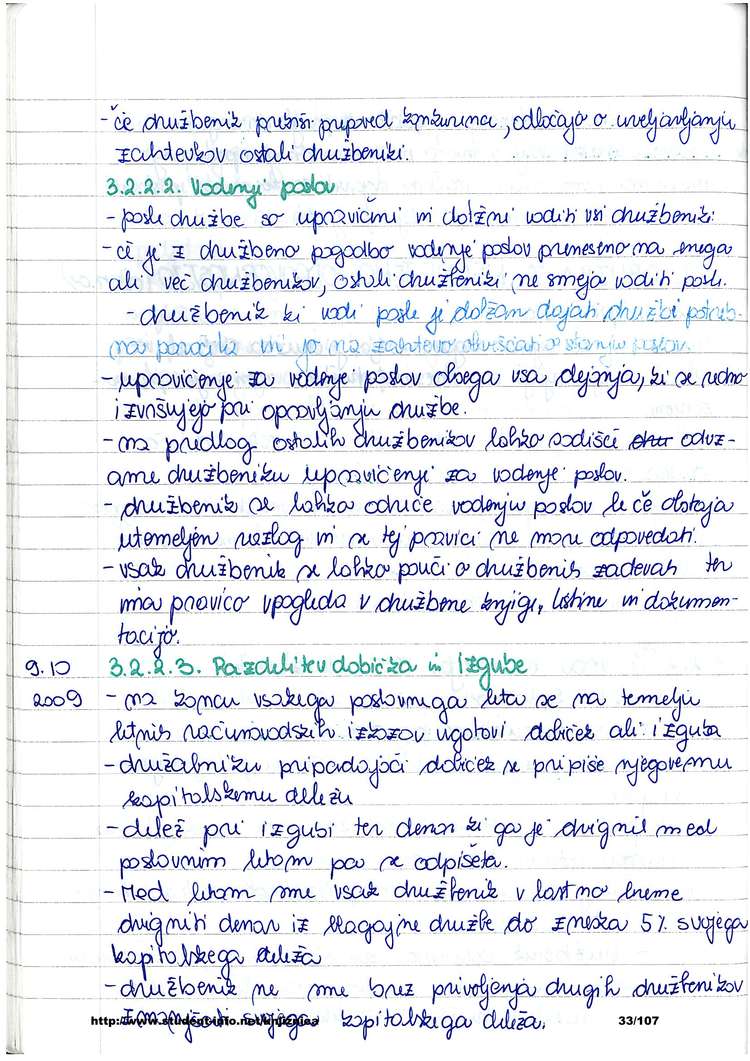 - če družbenik prekrši prepoved konkurence, odločajo o uveljavljanju
zahtevkov ostali družbeniki.
3.2.2.2. Vodenje poslov
- posle družbe so upravičeni in dolžni voditi vsi družbeniki.
- če je z družbeno pogodbo vodenje poslov preneseno na enega
ali več družbenikov, ostali družbeniki ne smejo voditi posle.
- družbenik ki vodi posle je dolžan dajati družbi potreb-
na poročila in jo na zahtevo obveščati o stanju poslov.
- upravičenje za vodenje poslov obsega vsa dejanja, ki se redno
izvršujejo pri opravljanju družbe.
- na predlog ostalih družbenikov lahko sodišče odvz-
ame družbeniku upravičenje za vodenje poslov.
- družbenik se lahko odreče vodenju poslov le če obstaja
utemeljen razlog in se tej pravici ne more odpovedati.
- vsak družbenik se lahko pouči o družbenih zadevah ter
ima pravico vpogleda v družbene knjige, listine in dokumen-
tacijo.
9.10 3.2.2.3. Razdelitev dobička in izgube
2009 - na koncu vsakega poslovnega leta se na temelju
letnih računovodskih izkazov ugotovi dobiček ali izguba
- družabniku pripadajoči dobiček se pripiše njegovemu
kapitalskemu deležu
- delež pri izgubi ter denar ki ga je dvignil med
poslovnim letom pa se odpišeta.
- Med letom sme vsak družbenik v lastno breme
dvigniti denar iz blagajne družbe do zneska 5% svojega
kapitalskega deleža
- družbenik ne sme brez privoljenja drugih družbenikov
zmanjšati svojega kapitalskega deleža.
http://www.student-info.net/knjiznica 33/107